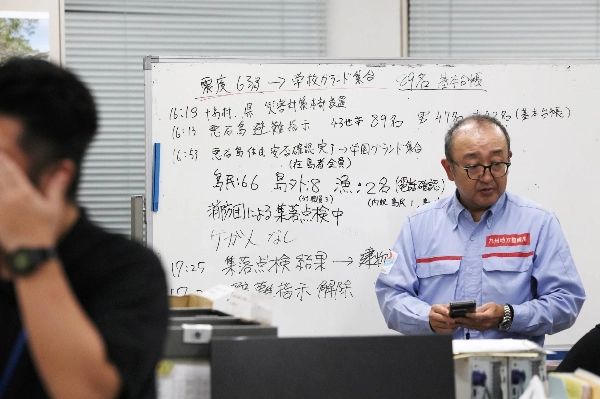 震度6弱→学校グランド集合 89名 基本台帳
16:19 十島村、県 災害対策本部設置
16:13 悪石島避難指示 43世帯 89名 男47名 (基本台帳)
16:53 悪石島住民安否確認完了→学園グランド集合
(在島者全員)
島民:66 島外:8 漁:2名(電話確認)
消防団による集落点検中
ケガ人なし
17:25 集落点検結果→
避難指示解除
九州地方整備局